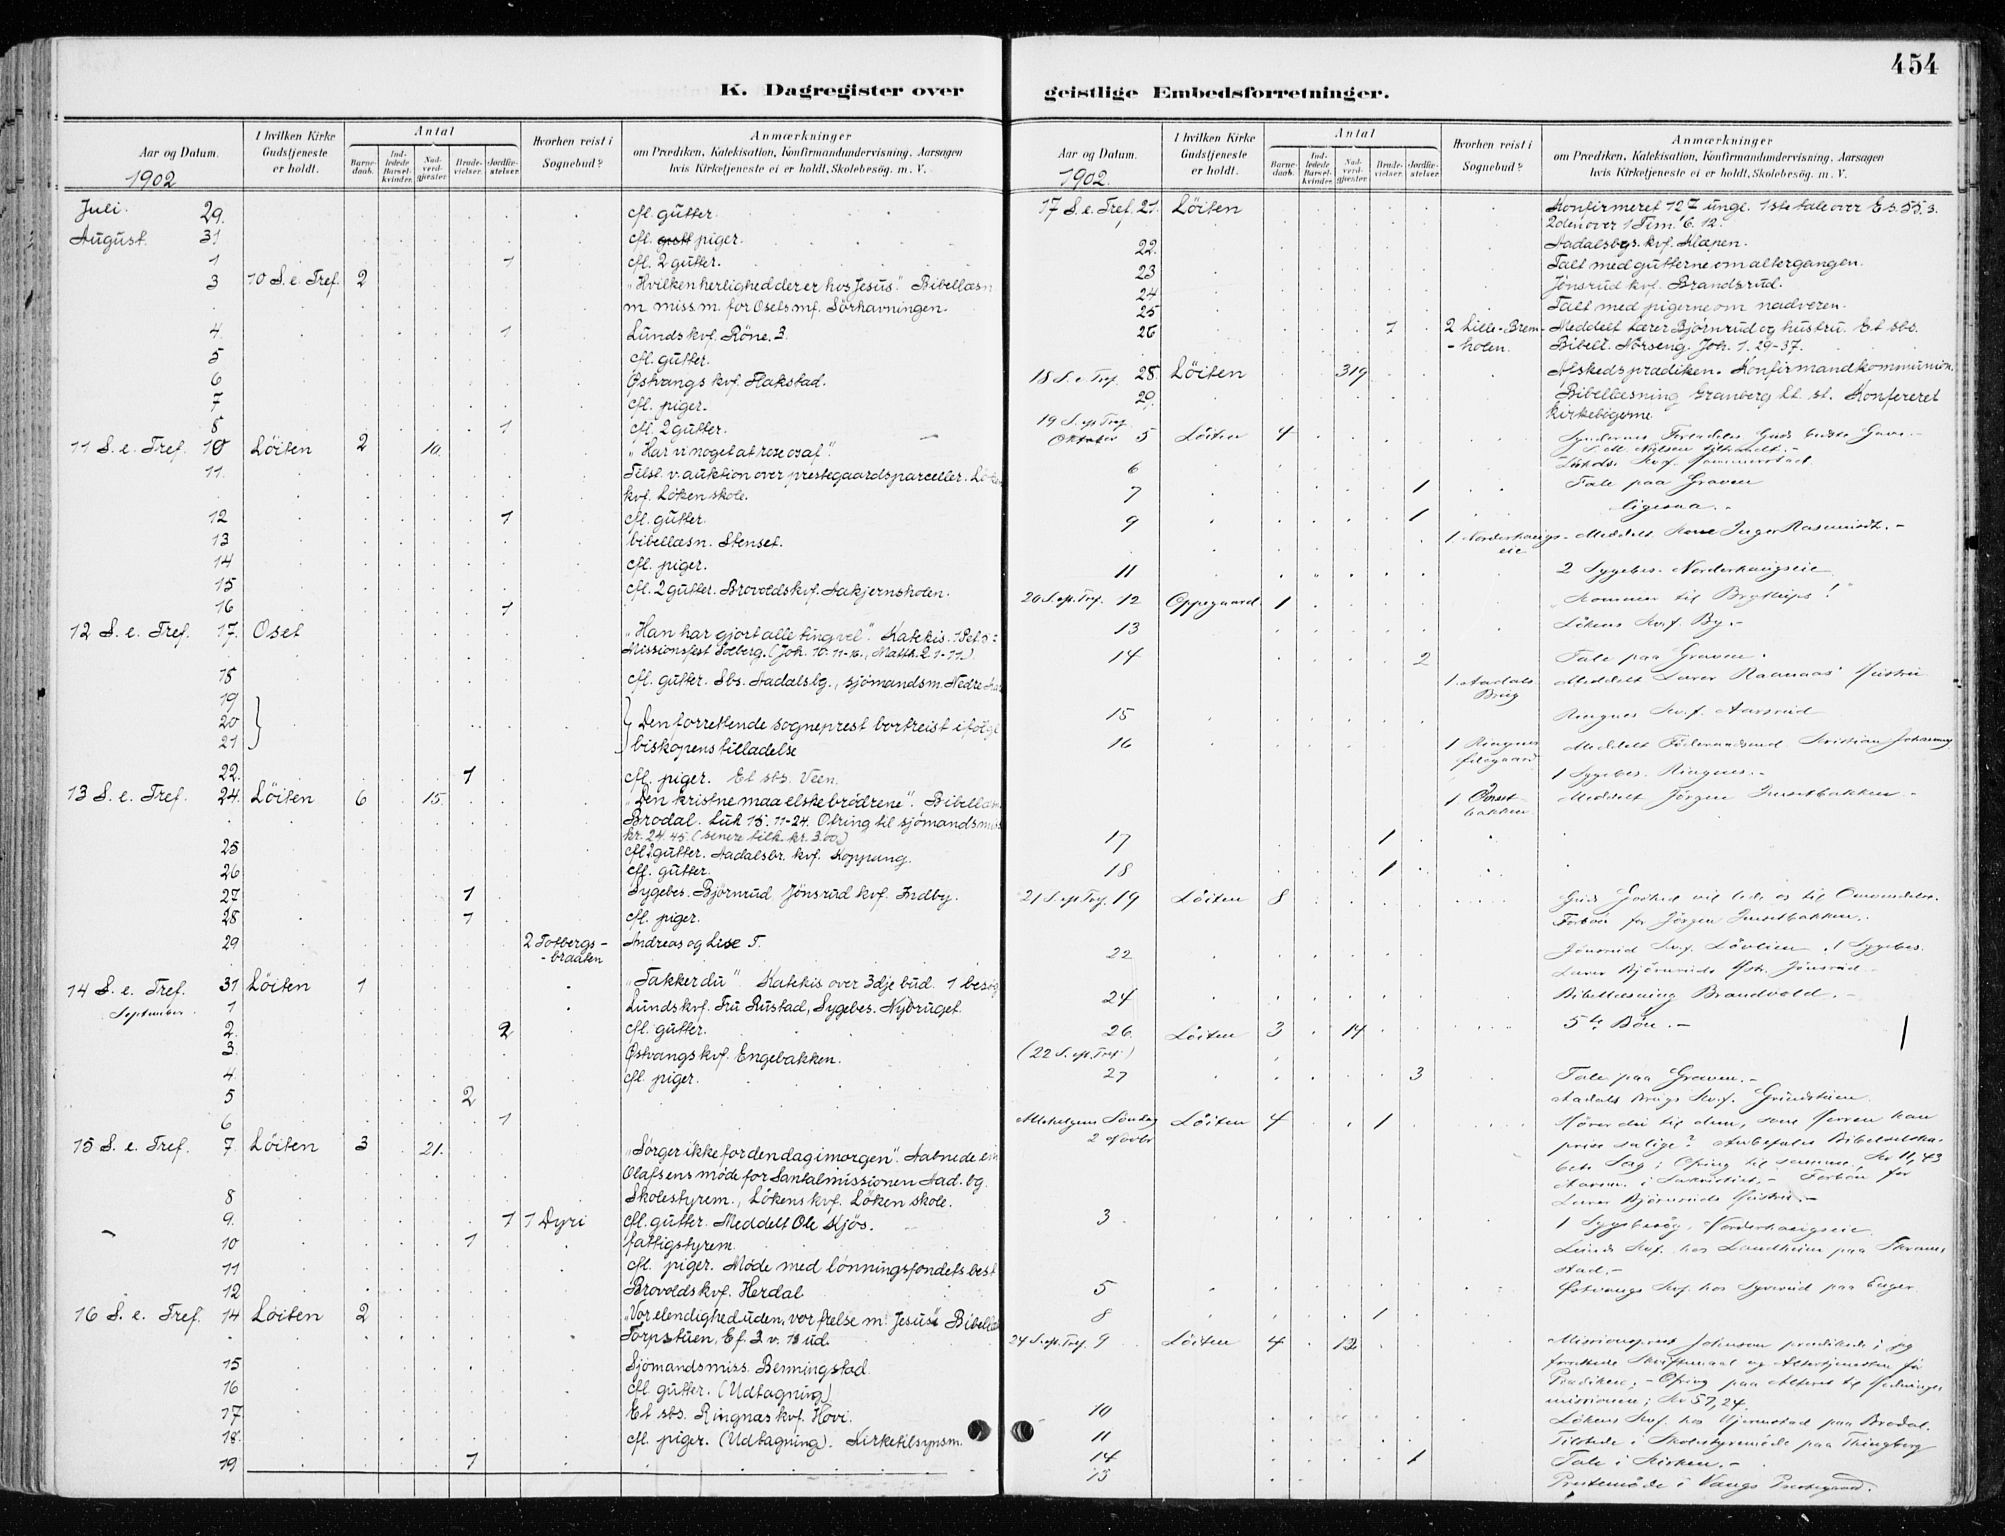 454
K. Dagregister over
geistlige Embedsforretninger.
Aar og Datum.
1902
I hvilken Kirke Gudstjeneste er holdt.
Antal
Barnedaab.
Indledede Barselkvinder.
Nadverdgjester.
Brudevielser.
Jordfæstelser.
Hvorhen reist i Sognebud?
Anmærkninger
om Prædiken, Katekisation, Konfirmandundervisning. Aarsagen
hvis Kirketjeneste ei er holdt, Skolebesøg. m. V.
Juli. 29. cfl. gutter.
August. 31 cfl. piger.
1 1 cfl. 2 gutter.
3 10 S. e. Tref. 2 "Hvilken herlighed der er hos Jesus". Bibellæsn
m. miss.m. for Osets mf. Sörhavningen.
4 1 Lunds kvf. Röne. 3.
5 cfl. gutter.
6 Østvangs kvf. Flakstad.
7 cfl. piger.
8 1 cfl. 2 gutter.
11 S. e. Tref. 10 Løiten 2 10. "Har vi noget at rose os af".
11. Tilst. v. auktion over prestegaardsparceller.
kvf. Løken skole.
12 1 cfl. gutter.
13 bibellæsn. Stenset.
14 cfl. piger.
15 cfl. 2 gutter. Brovolds kvf. Aakjernsholen.
16 1
12 S. e. Tref. 17. Oset "Han har gjort alle ting vel". Katekis. 1 Pet. 5:
Missionsfest Solberg. (Joh. 10. 11-16., Matth. 2. 1-11.)
18 cfl. gutter. Sbs. Aadalsbg., sjömandsm. Nedre
19
20 Den forrettende sogneprest bortreist ifölge
21 biskopens tilladelse
22. 1 cfl. piger. Et sbs. Veen.
13 S. e. Tref. 24. Løiten 6 15. "Den kristne maa elske brödrene". Bibellæsn
Brodal. Luk 15. 11-24. Ofring til sjömandsmiss
kr. 24.45. (senere tilk. kr. 3.00)
25 cfl 2 gutter. Aadalsbr. kvf. Koppang.
26 cfl. gutter.
27 1 Sygebes. Björnrud. Jönsrud kvf. Indby.
28 1 cfl. piger.
29 2 Totbergs-
-braaten Andreas og Lise T.
14 S. e. Tref. 31 Løiten 1 "Takker du" Katekis over 3dje bud. 1 besög
September 1 Lunds kvf. Fru Rustad, Sygebes. Nybruget.
2. 2 cfl. gutter.
3. Østvangs kvf. Engebakken.
4. cfl. piger.
5 2
6 1
15 S. e. Tref. 7. Løiten 3 21. "Sørger ikke for den dag imorgen". Aabnede
Olafsens möde for Santalmissionen Aad. bg.
8 Skolestyrem., Lökens kvf. Löken skole.
9. 1 1 Dyri cfl. gutter. Meddelt Ole Kjös.
10 1 fattigstyrem.
11 cfl. piger. Möde med lønningsfondets best
12 Brovolds kvf. Herdal
16 S. e. Tref. 14 Løiten 2 "Vor elendighed uden, vor frelse m. Jesus". Bibellæ
Torpstuen, Ef. 3. v. 13 ud.
15 Sjömandsmiss. Benningstad.
16 cfl. gutter. (Udtagning)
17 Et sbs. Ringnæs kvf. Hovi.
18. cfl. piger. (Udtagning). Kirketilsynsm.
19 1
Aar og Datum.
1902.
I hvilken Kirke Gudstjeneste er holdt.
Antal
Barnedaab.
Indledede Barselkvinder.
Nadverdgjester.
Brudevielser.
Jordfæstelser.
Hvorhen reist i Sognebud?
Anmærkninger
om Prædiken, Katekisation, Konfirmandundervisning. Aarsagen
hvis Kirketjeneste ei er holdt, Skolebesøg. m. V.
17 S. e. Tref. 21. Løiten Konfirmeret 127 ungl. 1ste tale over Es. 55. 3.
2den over 1 Tim. 6. 12.
22. Aadalsbgs. kvf. Klæpen.
23 Talt med gutterne om altergangen.
24 Jönsrud kvf. Brandsrud.
25 Talt med pigerne om nadveren.
26 1 2 Lille-Brem-
-holen. Meddelt Lærer Björnrud og hustru. Et sbs.
Bibell. Nörseng. Joh. 1. 29-37.
18 S. e. Tref. 28. Løiten 319 Afskedsprædiken. Konfirmandkommunion.
29. Bibellæsning Granberg Et st. Konfereret
kirkebögerne
19 S. ep Tref.
Oktober 5 Løiten 4 Syndernes Forladelse Guds bedste Gave.-
6
7 1 Tale paa Graven
9 1 ligesaa.-
1 Norderhaugs-
eie Meddelt Kone Inger Rasmusdt.-
11 2 Sygebes. Norderhaugseie
20 S. ep. Tref. 12 Oppegaard 1 "Kommer til Bryllups!"
13 Løkens Kv.f. By.-
14 2 Tale paa Graven.
1 Aadals
Brug Meddelt Lærer Raanaas' Hustru
15 Ringnes Kv.f. Aarsrud
16 1 Ringnes Meddelt Föderaadsmd. Kristian Johannes
1 Sygebes. Ringnes.-
1 Önset-
bakken Meddelt Jörgen Imsetbakken-
17 1
18 1
21 S ep Tref. 19 Løiten 8 Guds Godhed vil lede os til Omvendelse.
Forbön for Jörgen Imsetbakken.
22 Jönsrud Kv.f. Lövlien. 1 Sygebes.
Lærer Björnruds Hstr. Jönsrud-
24 Bibellæsning Brandvold.-
26 Løiten 3 14 5te Bön.-
(22 S. ep. Tref.)
27 3 Tale paa Graven.-
Aadals Brugs Kv.f. Grindstuen
Allehelgens Søndag
2 Novbr Løiten 4 1 Hører du til dem, som Herren kan
prise salige? Anbefales Bibelselska-
bets Sag; Ofring til samme, Kr 11,43
i Sakristiet,- Forbön for
Lærer Björnruds Hustru.-
3 1 Sygebesøg, Norderhaugseie
Lunds Kvf. hos Landheim paa Skrams
stad.-
5 Østvangs Kvf. hos Syverud paa Enger
8 1
24 S. ep. Tref. 9 Løiten 4 12 Missionsprest Johnson prædikede i jeg
forrettede Skriftemaal og Altertjenesten før
Prædiken;- Ofring paa Alteret til Hedninge
missionen; Kr 57,24.
10 Løkens Kvf. hos Ujernstad paa Brodal.
11 Tilstede i Skolestyremøde paa Thingberg
14 1 Tale i Kirken.-
15 Prestemøde i Vangs Prestegaard.